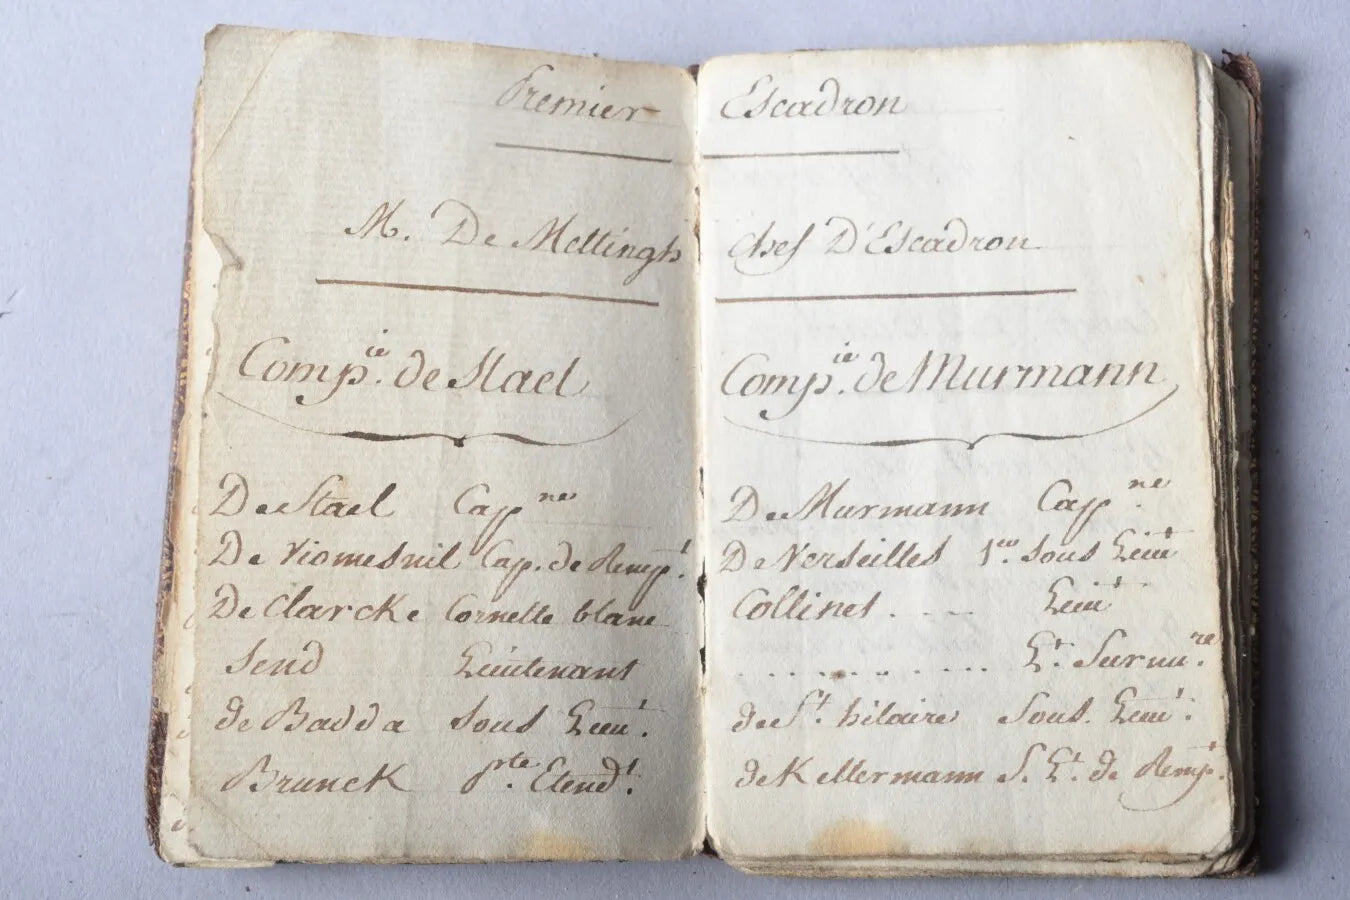 Premier Escadron
M. De Mettingh Chef D'Escadron
Comp.ie de Stael
De Stael Cap.ne
De Viomesnil Cap. de Remp.t
De Clarcke Cornette blanc
Send Lieutenant
de Badda Sous Lieu.t
Brunck P.te Etend.t
Comp.ie de Murmann
De Murmann Cap.ne
De Verseilles 1.er Sous Lieut
Collinet .... Lieu.t
. . . . . . . . . L.t Surnu.re
de S.t hilaire Sous. Lieu.t
de Kellermann S. L.t de Remp.t